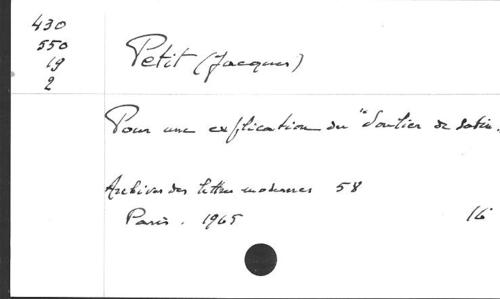 430
550
19
2
Petit (Jacques)
Pour une explication du "Soulier de satin.
Archives des lettres modernes 58
Paris. 1965 16